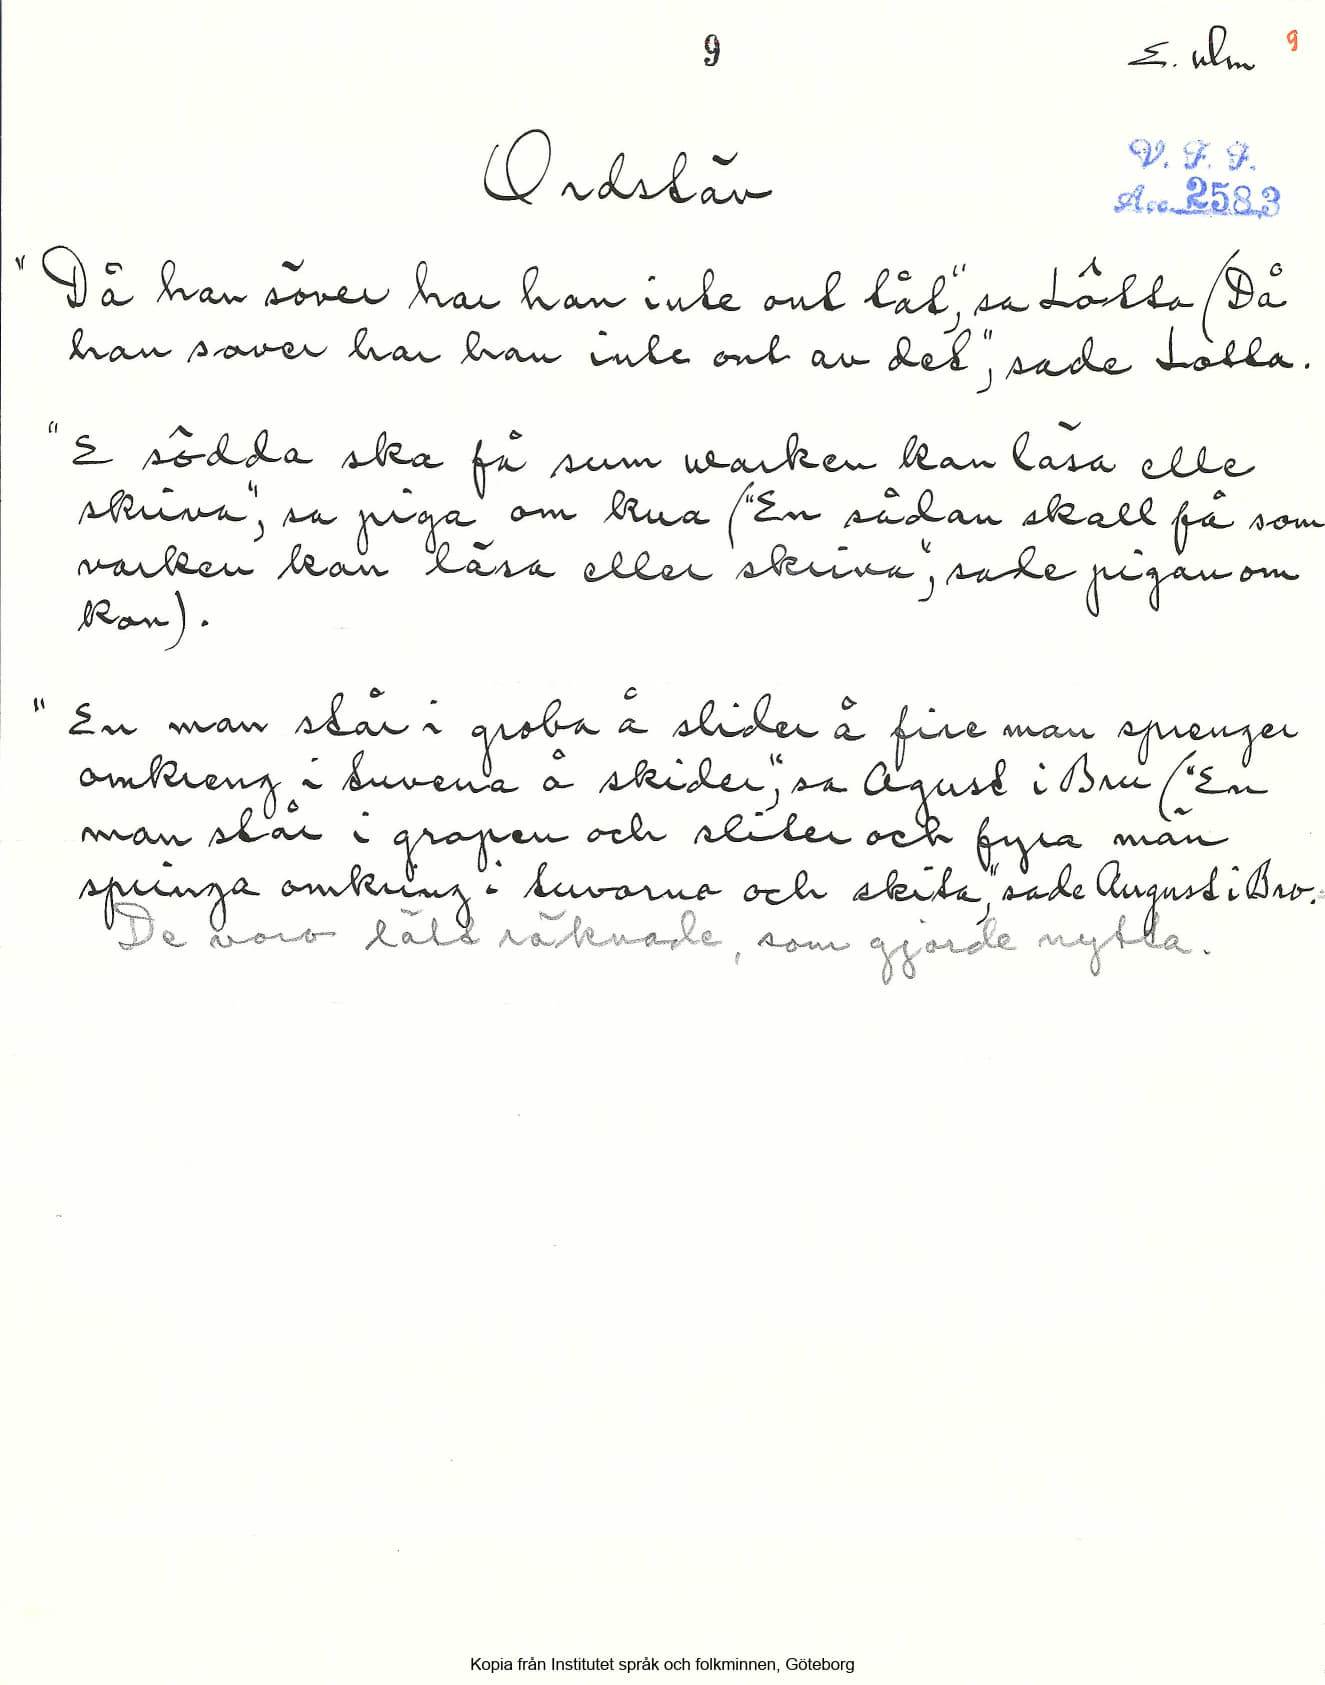 9
E. Ulm
9
Ordstäv
V. F. F.
Acc. 2583
"Då han söver har han inte ont tåt", sa Lôtta (Då
han sover har han inte ont av det", sade Lotta.
"E sôdda ska få sum warken kan läsa elle
skriva", sa piga om kua ("En sådan skall få som
varken kan läsa eller skriva", sade pigan om
kon).
"En man står i groba å slider å fire man sprenger
omkreng i tuvena å skider", sa Agust i Bru ("En
man står i gropen och sliter och fyra män
springa omkring i tuvorna och skita", sade August i Bro.
De voro lätt räknade, som gjorde nytta.
Kopia från Institutet språk och folkminnen, Göteborg